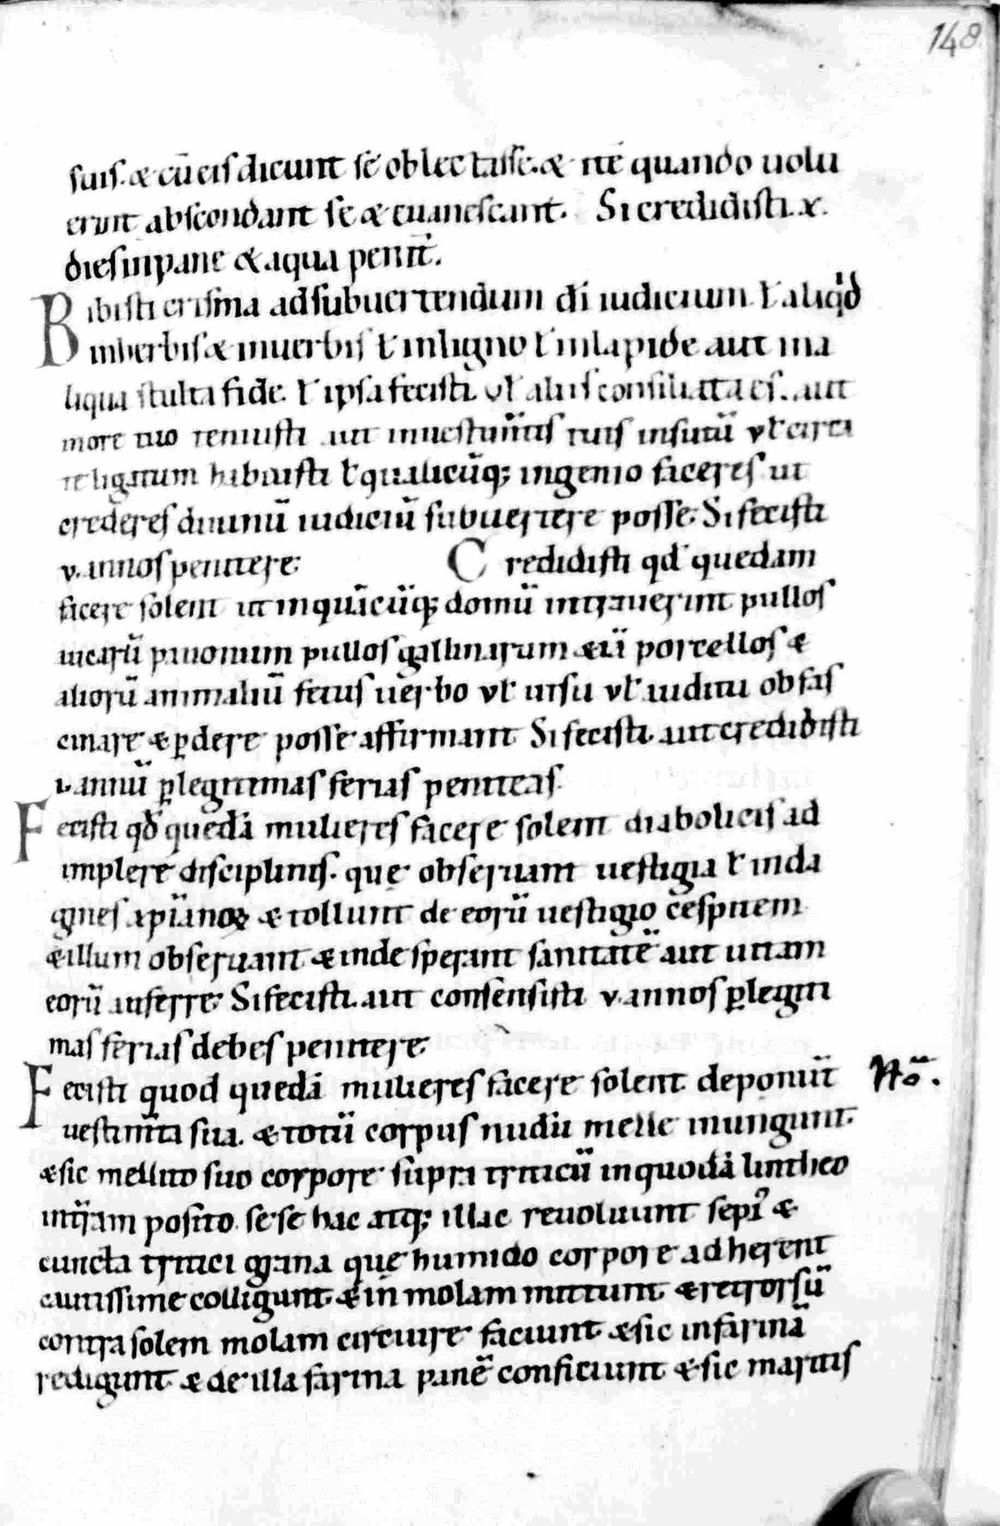 148
suis. & cū eis dicunt se oblectasse. & itē quando uolu
erint abscondant se & euanescant. Si credidisti .x.
dies in pane & aqua penit̄.
Bibisti crisma ad subuertendum dī iudicium. ł aliq͛d
in herbis & in uerbis ł in ligno ł in lapide aut in a
liqua stulta fide. ł ipsa fecisti. uł aliis consiliata es. aut
in ore tuo tenuisti aut in uestim̄tis tuis insutū uł circa
te ligatum habuisti ł qualicūq; ingenio faceres ut
crederes diuinū iudiciū subuertere posse. Si fecisti
v. annos penitere.
Credidisti qđ quedam
facere solent ut in quācūq; domū intrauerint pullos
aucarū pauonum pullos gallinarum etiā porcellos &
aliorū animaliū fetus uerbo uł uisu uł auditu obfas
cinare & ꝑdere posse affirmant. Si fecisti. aut credidisti
i. annū ꝑ legitimas ferias peniteas.
Fecisti qđ quedā mulieres facere solent diabolicis ad
implere disciplinis. que obseruant uestigia ł inda
gines xp̄ianoꝝ & tollunt de eorū uestigio cespitem
& illum obseruant & inde sperant sanitatē aut uitam
eorū auferre. Si fecisti. aut consensisti v. annos ꝑ legiti
mas ferias debes penitere.
Fecisti quod quedā mulieres facere solent deponūt
Nō.
uestim̄ta sua. & totū corpus nudū melle inungunt.
& sic mellito suo corpore supra triticū in quodā lintheo
in t̄ram posito se se hac atq; illac reuoluunt sepi᷒ &
cuncta tritici grana que humido corpore adherent
cautissime colligunt. & in molam mittunt. & retrorsū
contra solem molam circuire faciunt. & sic in farinā
redigunt. & de illa farina panē conficiunt. & sic maritis